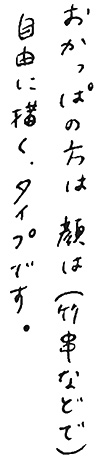 おかっぱの方は 顔は(竹串などで)
自由に描く、タイプです。